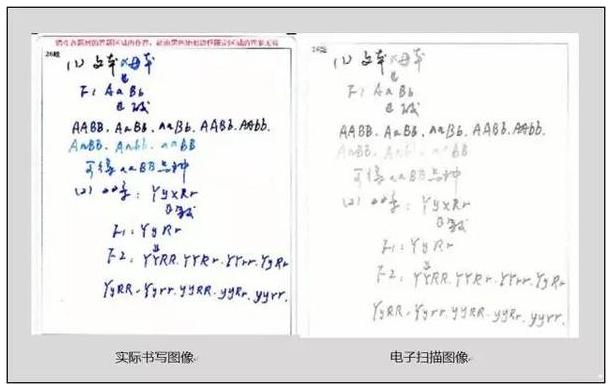 请在各题目的答题区域内作答，超出黑色矩形边框限定区域的答案无效
26题
(1) 父本×母本
F1 AaBb
AABB. AaBB. aaBb. AABb. AAbb.
AaBb. Aabb. aaBB
可得aaBB品种
YyxRr
F1: YyRr
F2: YYRR. YYRr. YYrr. YyRr
YyRR. Yyrr. yyRR. yyRr. yyrr.
实际书写图像
26题
(1) 父本×母本
F1 AaBb
AABB. AaBB. aaBb. AABb. AAbb.
AaBb. Aabb. aaBB
可得aaBB品种
YyxRr
F1: YyRr
F2: YYRR. YYRr. YYrr. YyRr
YyRR. Yyrr. yyRR. yyRr. yyrr.
电子扫描图像